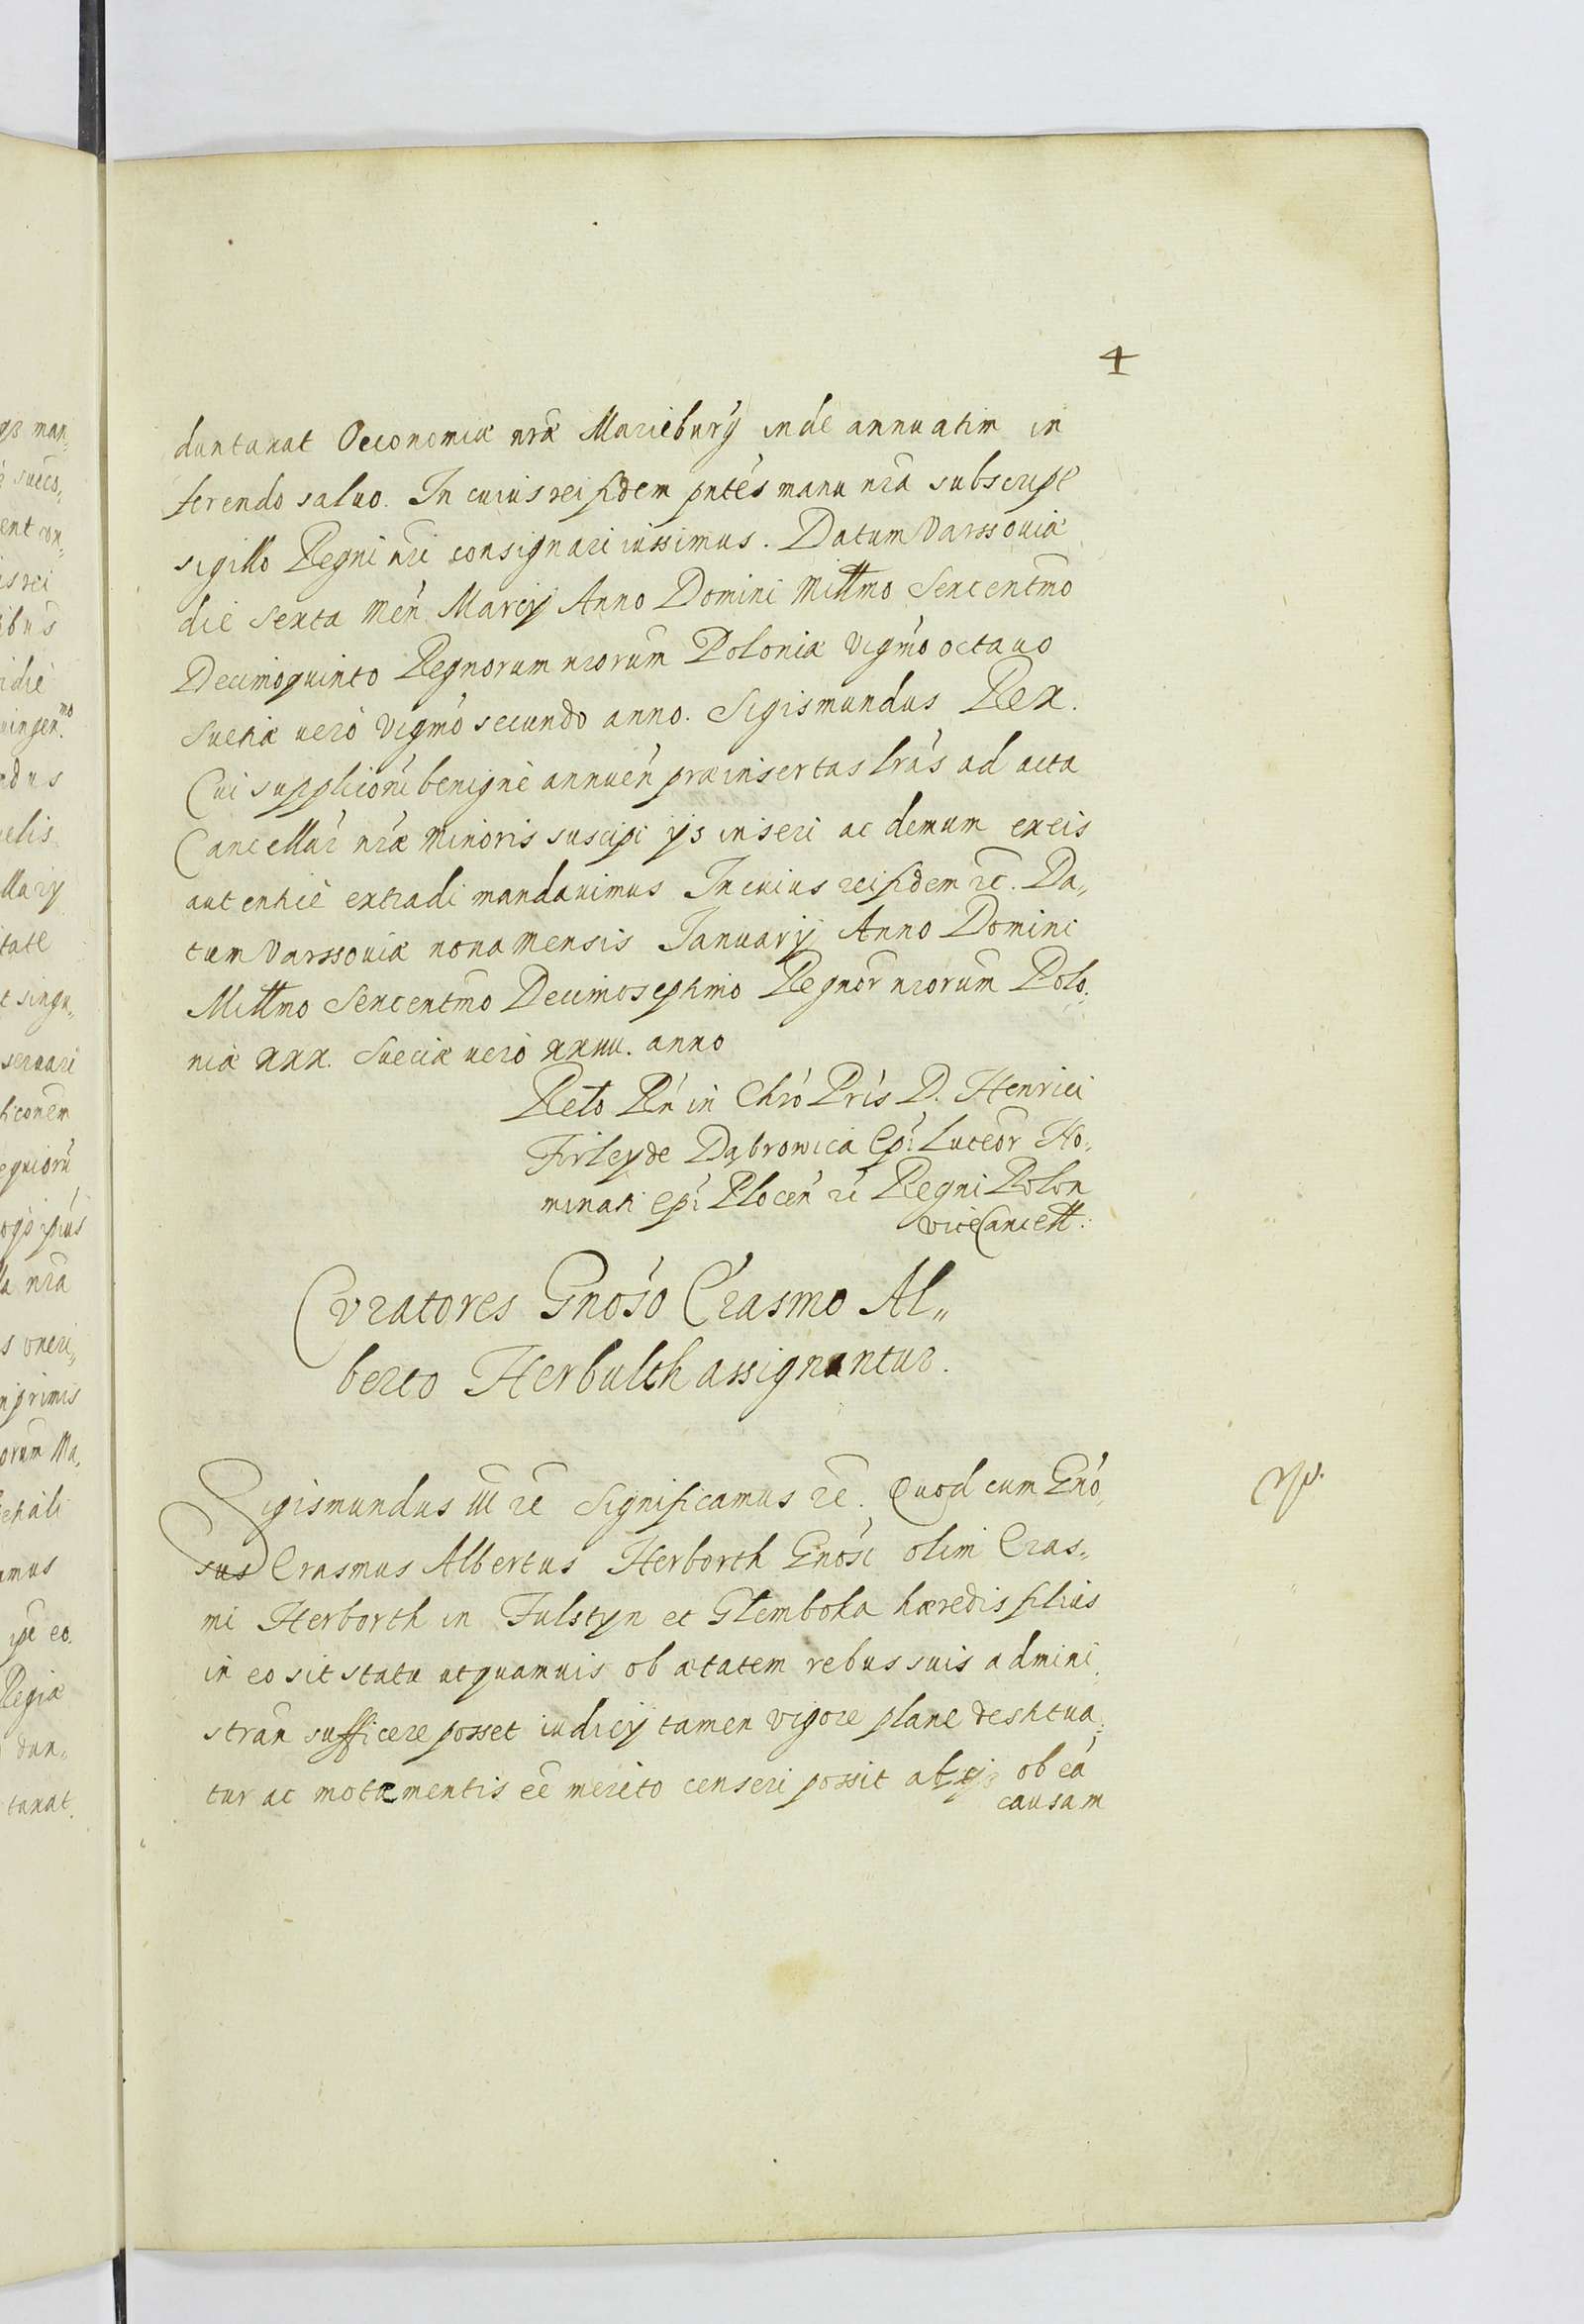 4
duntaxat Oeconomiæ nrã Marieburg̃ inde annuatim in
ferendo saluo. In cuius rei fidem pntes manu nrã subscrips̃
sigillo Regni nri consignari iussimus. Datum Varssouiæ
die sexta Men̄ Marcij Anno Domini Millmo Sexcentmo
Decimoquinto Regnorum nrorum Poloniæ vigmo octauo
Suetiæ uero vigmo secundo anno. Sigismundus Rex.
Cui supplicõni benigne annuen̄ præinsertas lras ad acta
Cancellar̃ nræ Minoris suscipi ijs inseri ac demum ex eis
autentice extradi mandauimus In cuius rei fidem rc. Da„
tum Varssouiæ nona Mensis January Anno Domini
Millmo Sexcentmo Decimoseptimo Regnor̃ nrorum Polo„
niæ xxx. Sueciæ uero xxiiii. anno
Relo Rn̄ in Chro Pris D. Henrici
Firley de Dąbrowica Epi Luceor̃ No„
minati Epi Plocen̄ rc Regni Polon
ViceCancell.
Curatores Gnoso Erasmo Al„
berto Herbulth assignantur.
Sigismundus III rc Significamus rc. Quod cum Gno„
sus Erasmus Albertus Herborth Gnosi olim Eras„
mi Herborth in Fulstyn et Glemboka hæredis filius
in eo sit statu ut quamuis ob ætatem rebus suis admini„
stran̄ sufficere posset iudicij tamen vigore plane destitua„
tur ac motæ mentis eẽ merito censeri possit atqз ob eã
causam